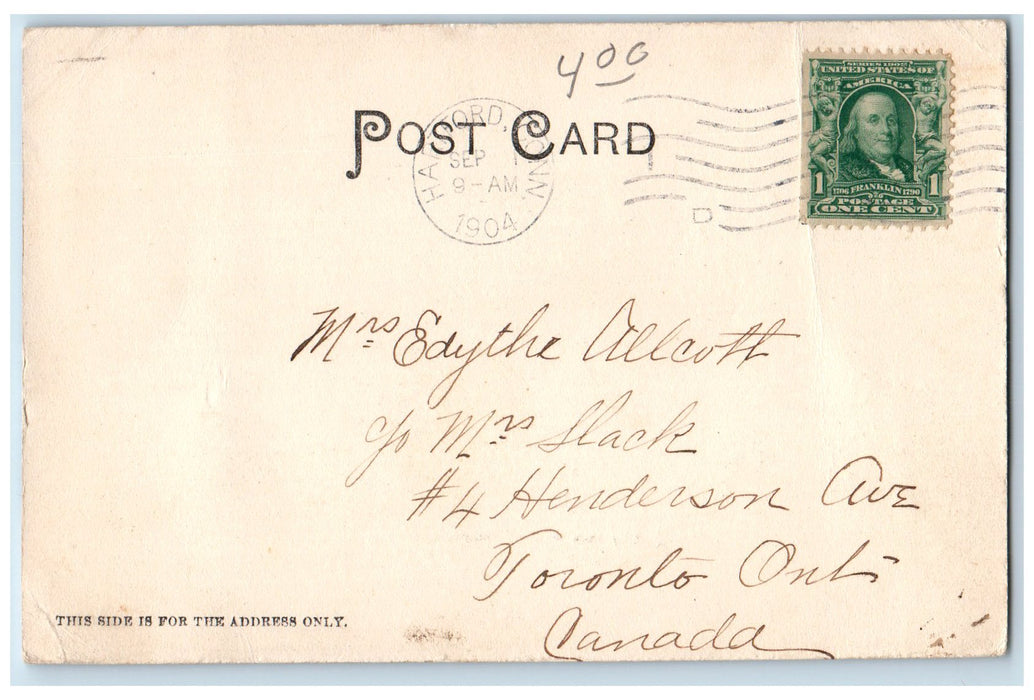 4 00
POST CARD
HARTFORD, CONN.
SEP 1
9-AM
1904
D
SERIES 1902
UNITED STATES OF
AMERICA
1 1706 FRANKLIN 1790 1
POSTAGE
ONE CENT
Mrs Edythe Allcott
c/o Mrs Slack
#4 Henderson Ave
Toronto Ont
Canada
THIS SIDE IS FOR THE ADDRESS ONLY.